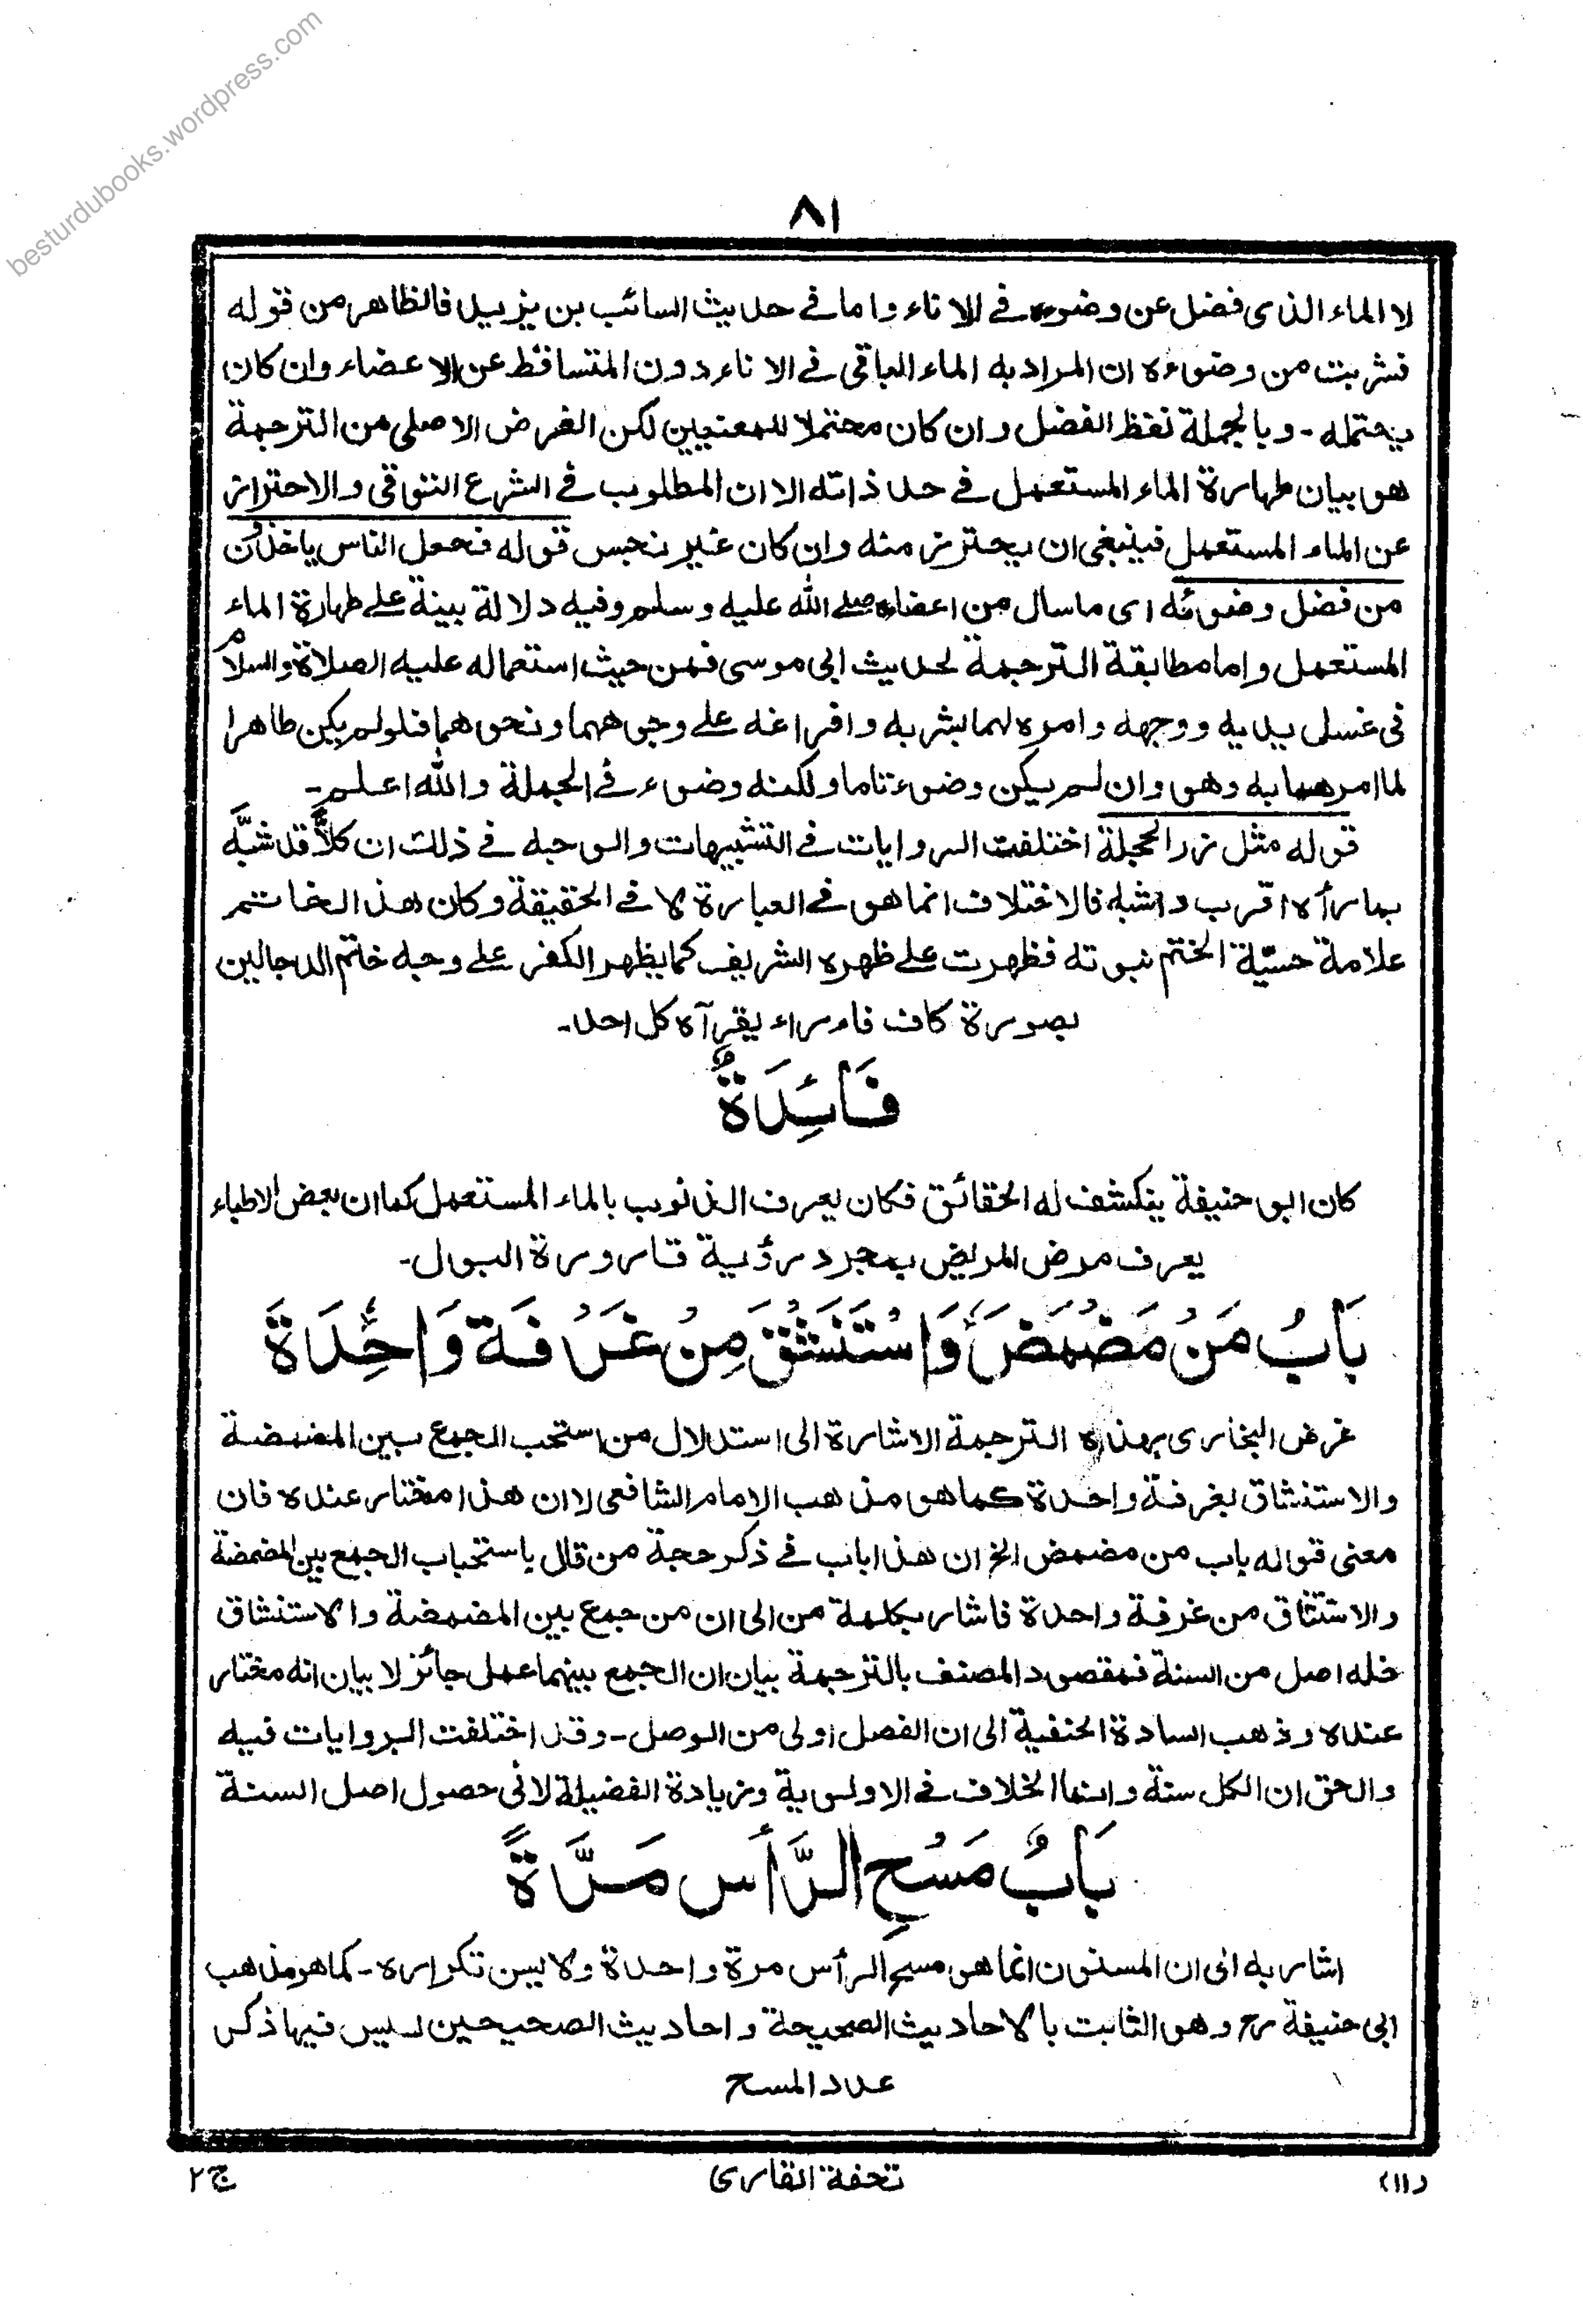 besturdubooks.wordpress.com
٨١
لا الماء الذى فضل عن وضوءه فى الاناء واما فى حديث السائب بن يزيد فالظاهر من قوله
فشربت من وضوءه ان المراد به الماء الباقى فى الاناء دون المتساقط عن الاعضاء وان كان
يحتمله - وبالجملة لفظ الفضل وان كان محتملا للمعنيين لكن الغرض الاصلى من الترجمة
هو بيان طهارة الماء المستعمل فى حد ذاته الا ان المطلوب فى الشرع التوقى والاحتراز
عن الماء المستعمل فينبغى ان يحترز منه وان كان غير نجس قوله فجعل الناس ياخذون
من فضل وضوئه اى ما سال من اعضاءه صلى الله عليه وسلم وفيه دلالة بينة على طهارة الماء
المستعمل واما مطابقة الترجمة لحديث ابى موسى فمن حيث استعماله عليه الصلاة والسلام
فى غسل يديه ووجهه وامره لهما بشربه وافراغه على وجوههما ونحوهما فلو لم يكن طاهرا
لما امرهما به وهو وان لم يكن وضوء تاما ولكنه وضوء فى الجملة والله اعلم -
قوله مثل زر الحجلة اختلفت الروايات فى التشبيهات والوجه فى ذلك ان كلاًّ قد شبَّه
بما رأه اقرب واشبه فالاختلاف انما هو فى العبارة لا فى الحقيقة وكان هذ الخاتم
علامة حسيّة الختم نبوته فظهرت على ظهره الشريف كما يظهر الكفر على وجه خاتم الدجالين
بصورة كاف فاء راء يقرآه كل احد -
فَائِدَةٌ
كان ابو حنيفة ينكشف له الحقائق فكان يعرف الذنوب بالماء المستعمل كما ان بعض الاطباء
يعرف مرض المريض بمجرد رؤية قارورة البول -
بَابُ مَنْ مَضْمَضَ وَاسْتَنْشَقَ مِنْ غَرْفَةٍ وَاحِدَةٍ
غرض البخارى بهذه الترجمة الاشارة الى استدلال من استحب الجمع بين المضمضة
والاستنشاق بغرفة واحدة كما هو مذهب الامام الشافعى لا ان هذا مختار عنده فان
معنى قوله باب من مضمض الخ ان هذا باب فى ذكر حجة من قال باستحباب الجمع بين المضمضة
والاستنشاق من غرفة واحدة فاشار بكلمة من الى ان من جمع بين المضمضة والاستنشاق
فله اصل من السنة فمقصود المصنف بالترجمة بيان ان الجمع بينهما عمل جائز لا بيان انه مختار
عنده وذهب السادة الحنفية الى ان الفصل اولى من الوصل - وقد اختلفت الروايات فيه
والحق ان الكل سنة وانما الخلاف فى الاولوية وزيادة الفضيلة لا فى حصول اصل السنة
بَابُ مَسْحِ الرَّأْسِ مَرَّةً
اشار به الى ان المسنون انما هو مسح الرأس مرة واحدة ولا يسن تكراره - كما هو مذهب
ابى حنيفة رح وهو الثابت بالاحاديث الصحيحة واحاديث الصحيحين ليس فيها ذكر
عدد المسح
(١١)
تحفة القارى
ج ٢